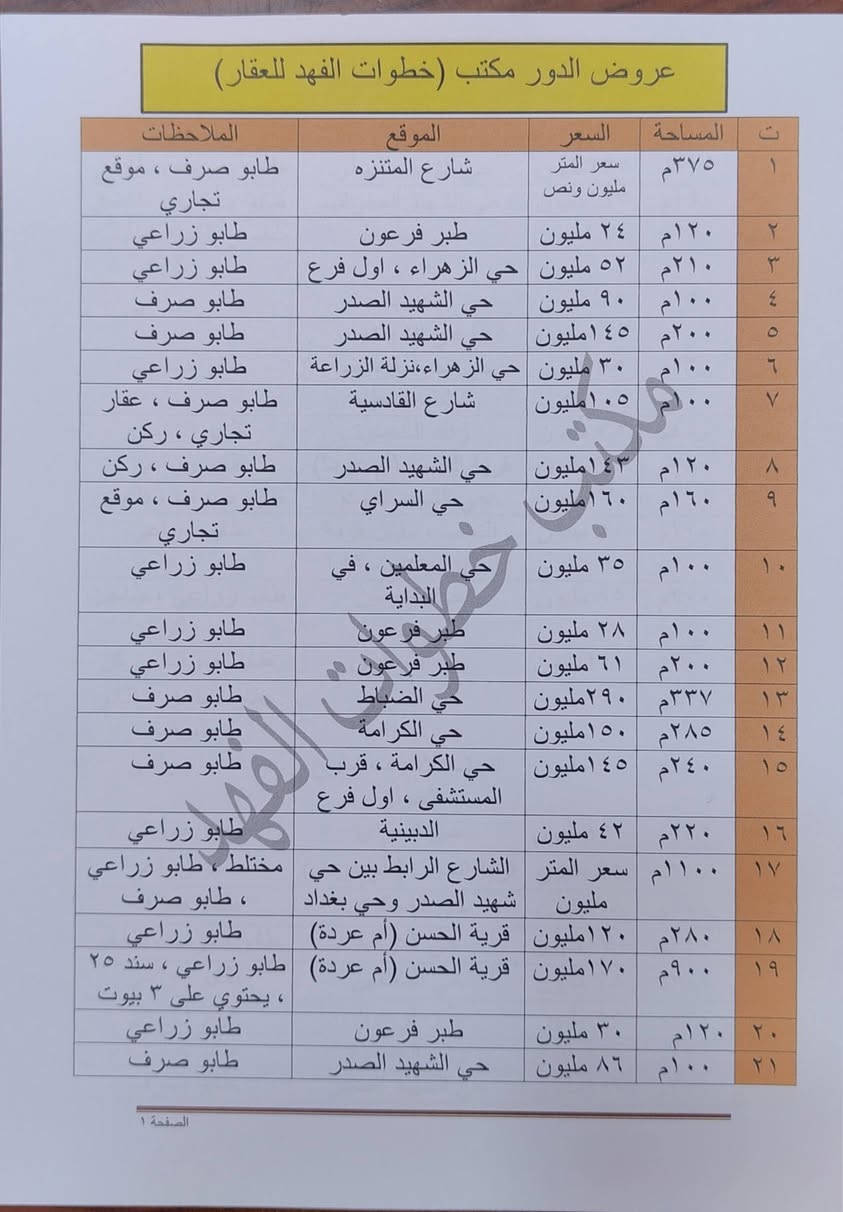 عروض الدور مكتب (خطوات الفهد للعقار)
ت المساحة السعر الموقع الملاحظات
١ ٣٧٥م سعر المتر مليون ونص شارع المتنزه طابو صرف ، موقع تجاري
٢ ١٢٠م ٢٤ مليون طبر فرعون طابو زراعي
٣ ٢١٠م ٥٢ مليون حي الزهراء ، اول فرع طابو زراعي
٤ ١٠٠م ٩٠ مليون حي الشهيد الصدر طابو صرف
٥ ٢٠٠م ١٤٥مليون حي الشهيد الصدر طابو صرف
٦ ١٠٠م ٣٠ مليون حي الزهراء،نزلة الزراعة طابو زراعي
٧ ١٠٠م ١٠٥مليون شارع القادسية طابو صرف ، عقار تجاري ، ركن
٨ ١٢٠م ١٤٣مليون حي الشهيد الصدر طابو صرف ، ركن
٩ ١٦٠م ١٦٠مليون حي السراي طابو صرف ، موقع تجاري
١٠ ١٠٠م ٣٥ مليون حي المعلمين ، في البداية طابو زراعي
١١ ١٠٠م ٢٨ مليون طبر فرعون طابو زراعي
١٢ ٢٠٠م ٦١ مليون طبر فرعون طابو زراعي
١٣ ٣٣٧م ٢٩٠مليون حي الضباط طابو صرف
١٤ ٢٨٥م ١٥٠مليون حي الكرامة طابو صرف
١٥ ٢٤٠م ١٤٥مليون حي الكرامة ، قرب المستشفى ، اول فرع طابو صرف
١٦ ٢٢٠م ٤٢ مليون الدبينية طابو زراعي
١٧ ١١٠٠م سعر المتر مليون الشارع الرابط بين حي شهيد الصدر وحي بغداد مختلط ، طابو زراعي ، طابو صرف
١٨ ٢٨٠م ١٢٠مليون قرية الحسن (أم عردة) طابو زراعي
١٩ ٩٠٠م ١٧٠مليون قرية الحسن (أم عردة) طابو زراعي ، سند ٢٥ ، يحتوي على ٣ بيوت
٢٠ ١٢٠م ٣٠ مليون طبر فرعون طابو زراعي
٢١ ١٠٠م ٨٦ مليون حي الشهيد الصدر طابو صرف
مكتب خطوات الفهد
الصفحة ١